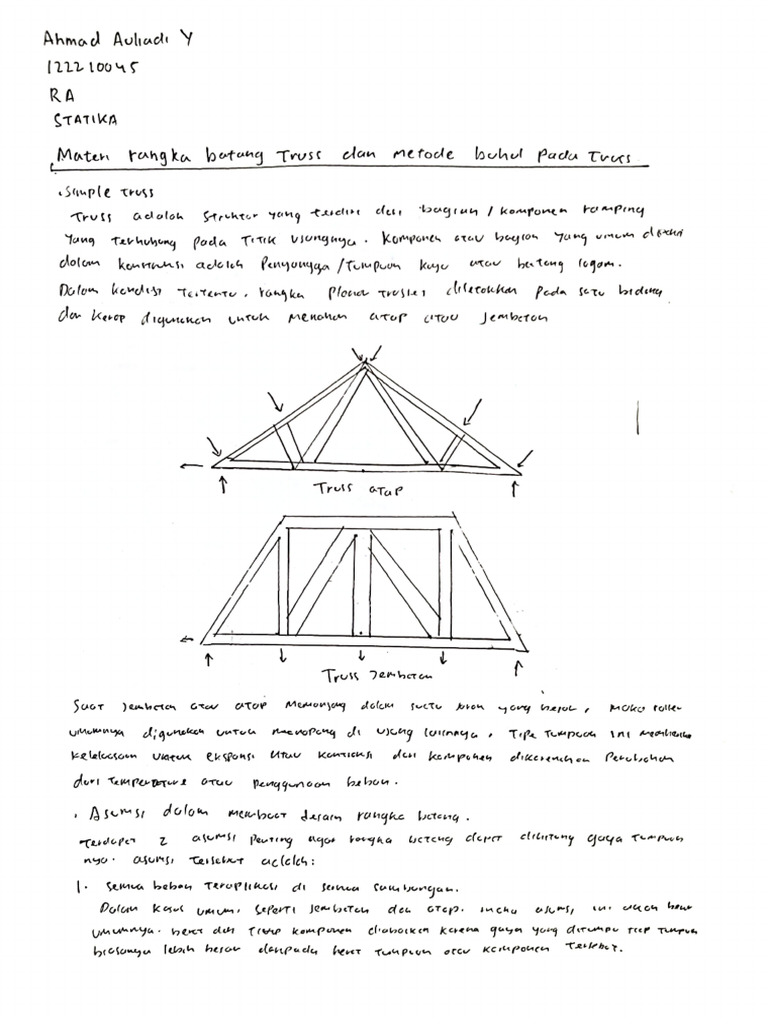 Ahmad Auliadi Y
122210045
RA
STATIKA
Materi rangka batang Truss dan metode buhul pada Truss
. Simple truss
Truss adalah struktur yang terdiri dari bagian / komponen ramping
yang terhubung pada titik ujungnya. Komponen atau bagian yang umum
dalam konstruksi adalah Penyangga / Tumpuan kayu atau batang logam.
Dalam kondisi tertentu, rangka Planar trusses diletakkan pada satu bidang
dan kerap digunakan untuk menahan atap atau jembatan
Truss atap
Truss Jembatan
Saat Jembatan atau atap memanjang dalam suatu jarak yang besar, maka roller
umumnya digunakan untuk menopang di ujung lainnya. Tipe tumpuan ini
keleluasaan untuk ekspansi atau kontraksi dari komponen dikarenakan Perubahan
dari temperature atau penggunaan beban.
. Asumsi dalam membuat desain rangka batang.
Terdapat 2 asumsi penting agar rangka batang dapat dihitung gaya tumpuan
nya. asumsi tersebut adalah:
1. semua beban teraplikasi di semua sambungan.
Dalam kasus umum, seperti jembatan dan atap. maka asumsi ini akan
umumnya. berat dari tiap komponen diabaikan karena gaya yang ditumpu tiap tumpuan
biasanya lebih besar daripada berat tumpuan atau komponen tersebut.